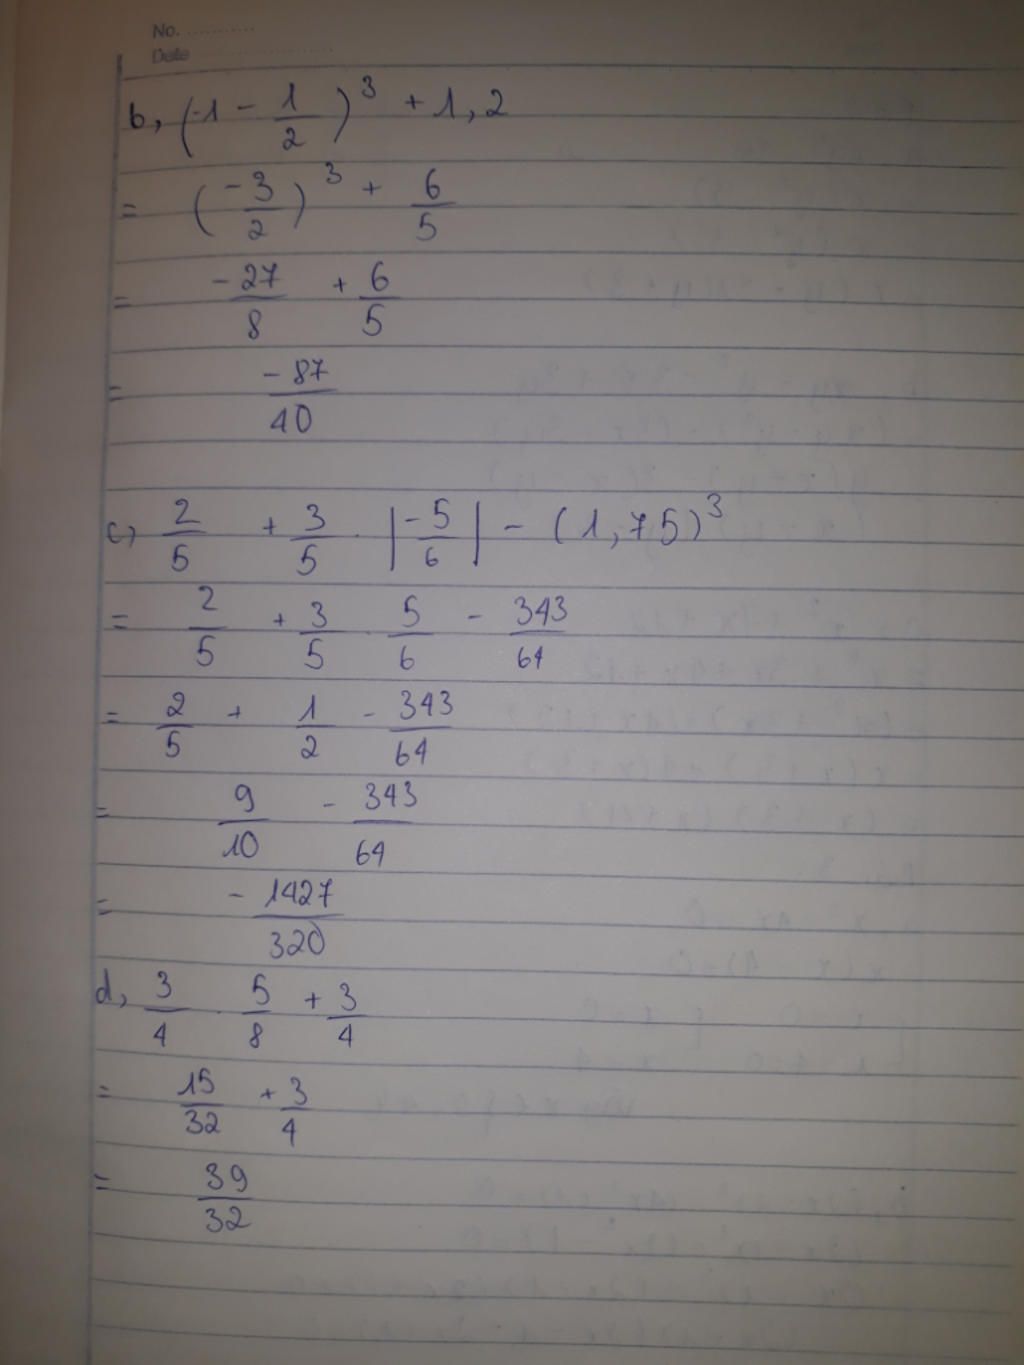 No. ............
Date ........................
b, (-1 - 1/2)³ + 1,2
= (-3/2)³ + 6/5
= -27/8 + 6/5
= -87/40
c, 2/5 + 3/5 . |-5/6| - (1,75)³
= 2/5 + 3/5 . 5/6 - 343/64
= 2/5 + 1/2 - 343/64
= 9/10 - 343/64
= -1427/320
d, 3/4 . 5/8 + 3/4
= 15/32 + 3/4
= 39/32